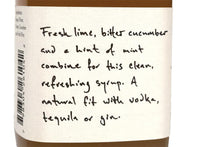 Fresh lime, bitter cucumber
and a hint of mint
combine for this clean,
refreshing syrup. A
natural fit with vodka,
tequila or gin.